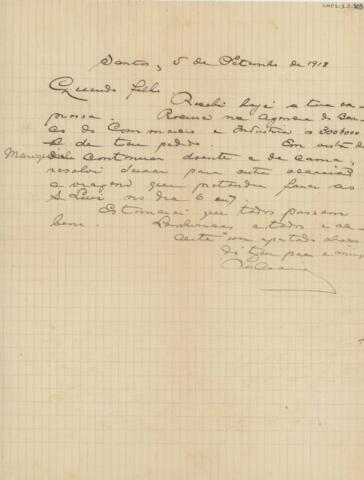 Santos, 5 de Setembro de 1918
Querido filho
Recebi hoje a tua ex-
pressa. na Agencia do Ban-
co do Commercio e Industria os 300$000
de teu pedido. Em vista de
continuar doente e de cama,
resolvi deixar para outra occasião
a viagem que pretendia fazer ao
S. Luiz no dia 6 ou 7
Estimarei que todos passem
bem. Lembranças a todos e ac-
ceite um apertado abraço
do teu pae e amigo